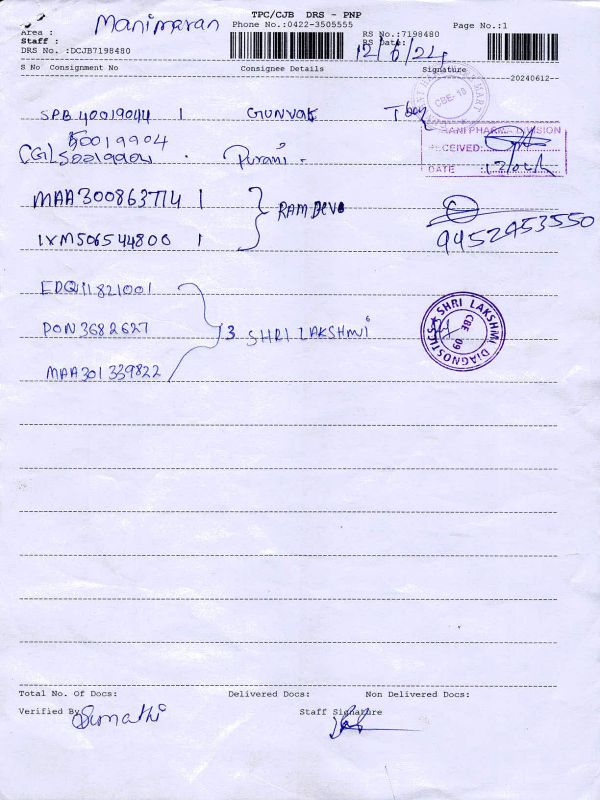 TPC/CJB DRS - PNP
Manimaran
Area :
Phone No.:0422-3505555
Page No.:1
Staff :
RS No:7198480
DRS No. :DCJB7198480
RS Date:
12/6/24
S No Consignment No Consignee Details Signature
20240612--
CBE-18
SPB 40019044 1 GUNVAK
50019904
RANI PHARMA DIVISION
RECEIVED:
DATE :
Purani -
MAA300863774 1
RAMDEVE
IXM506544800 1
9452953550
EDQ11821001
PON3682627 3 SHRI LAKSHMI
MAA301339822
SHRI LAKSHMI DIAGNOSTICS
CBE 09
Total No. Of Docs: Delivered Docs: Non Delivered Docs:
Verified By Sumathi
Staff Signature